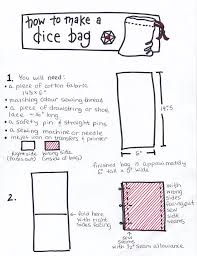 how to make a
dice bag
1. You will need:
• a piece of cotton fabric
14.5 x 6"
• matching colour sewing thread
• a piece of drawstring or shoe
lace ~16" long
• a safety pin & straight pins
• a sewing machine or needle
• inkjet iron on transfers + marker
Right side
(faces out)
Wrong side
(inside of bag)
14.5
6"
finished bag is approximately
6" tall x 5" wide
2.
fold here
with right
sides facing
with
wrong
sides
facing out
sew
side
seams
sew
seams
with ½" seam allowance